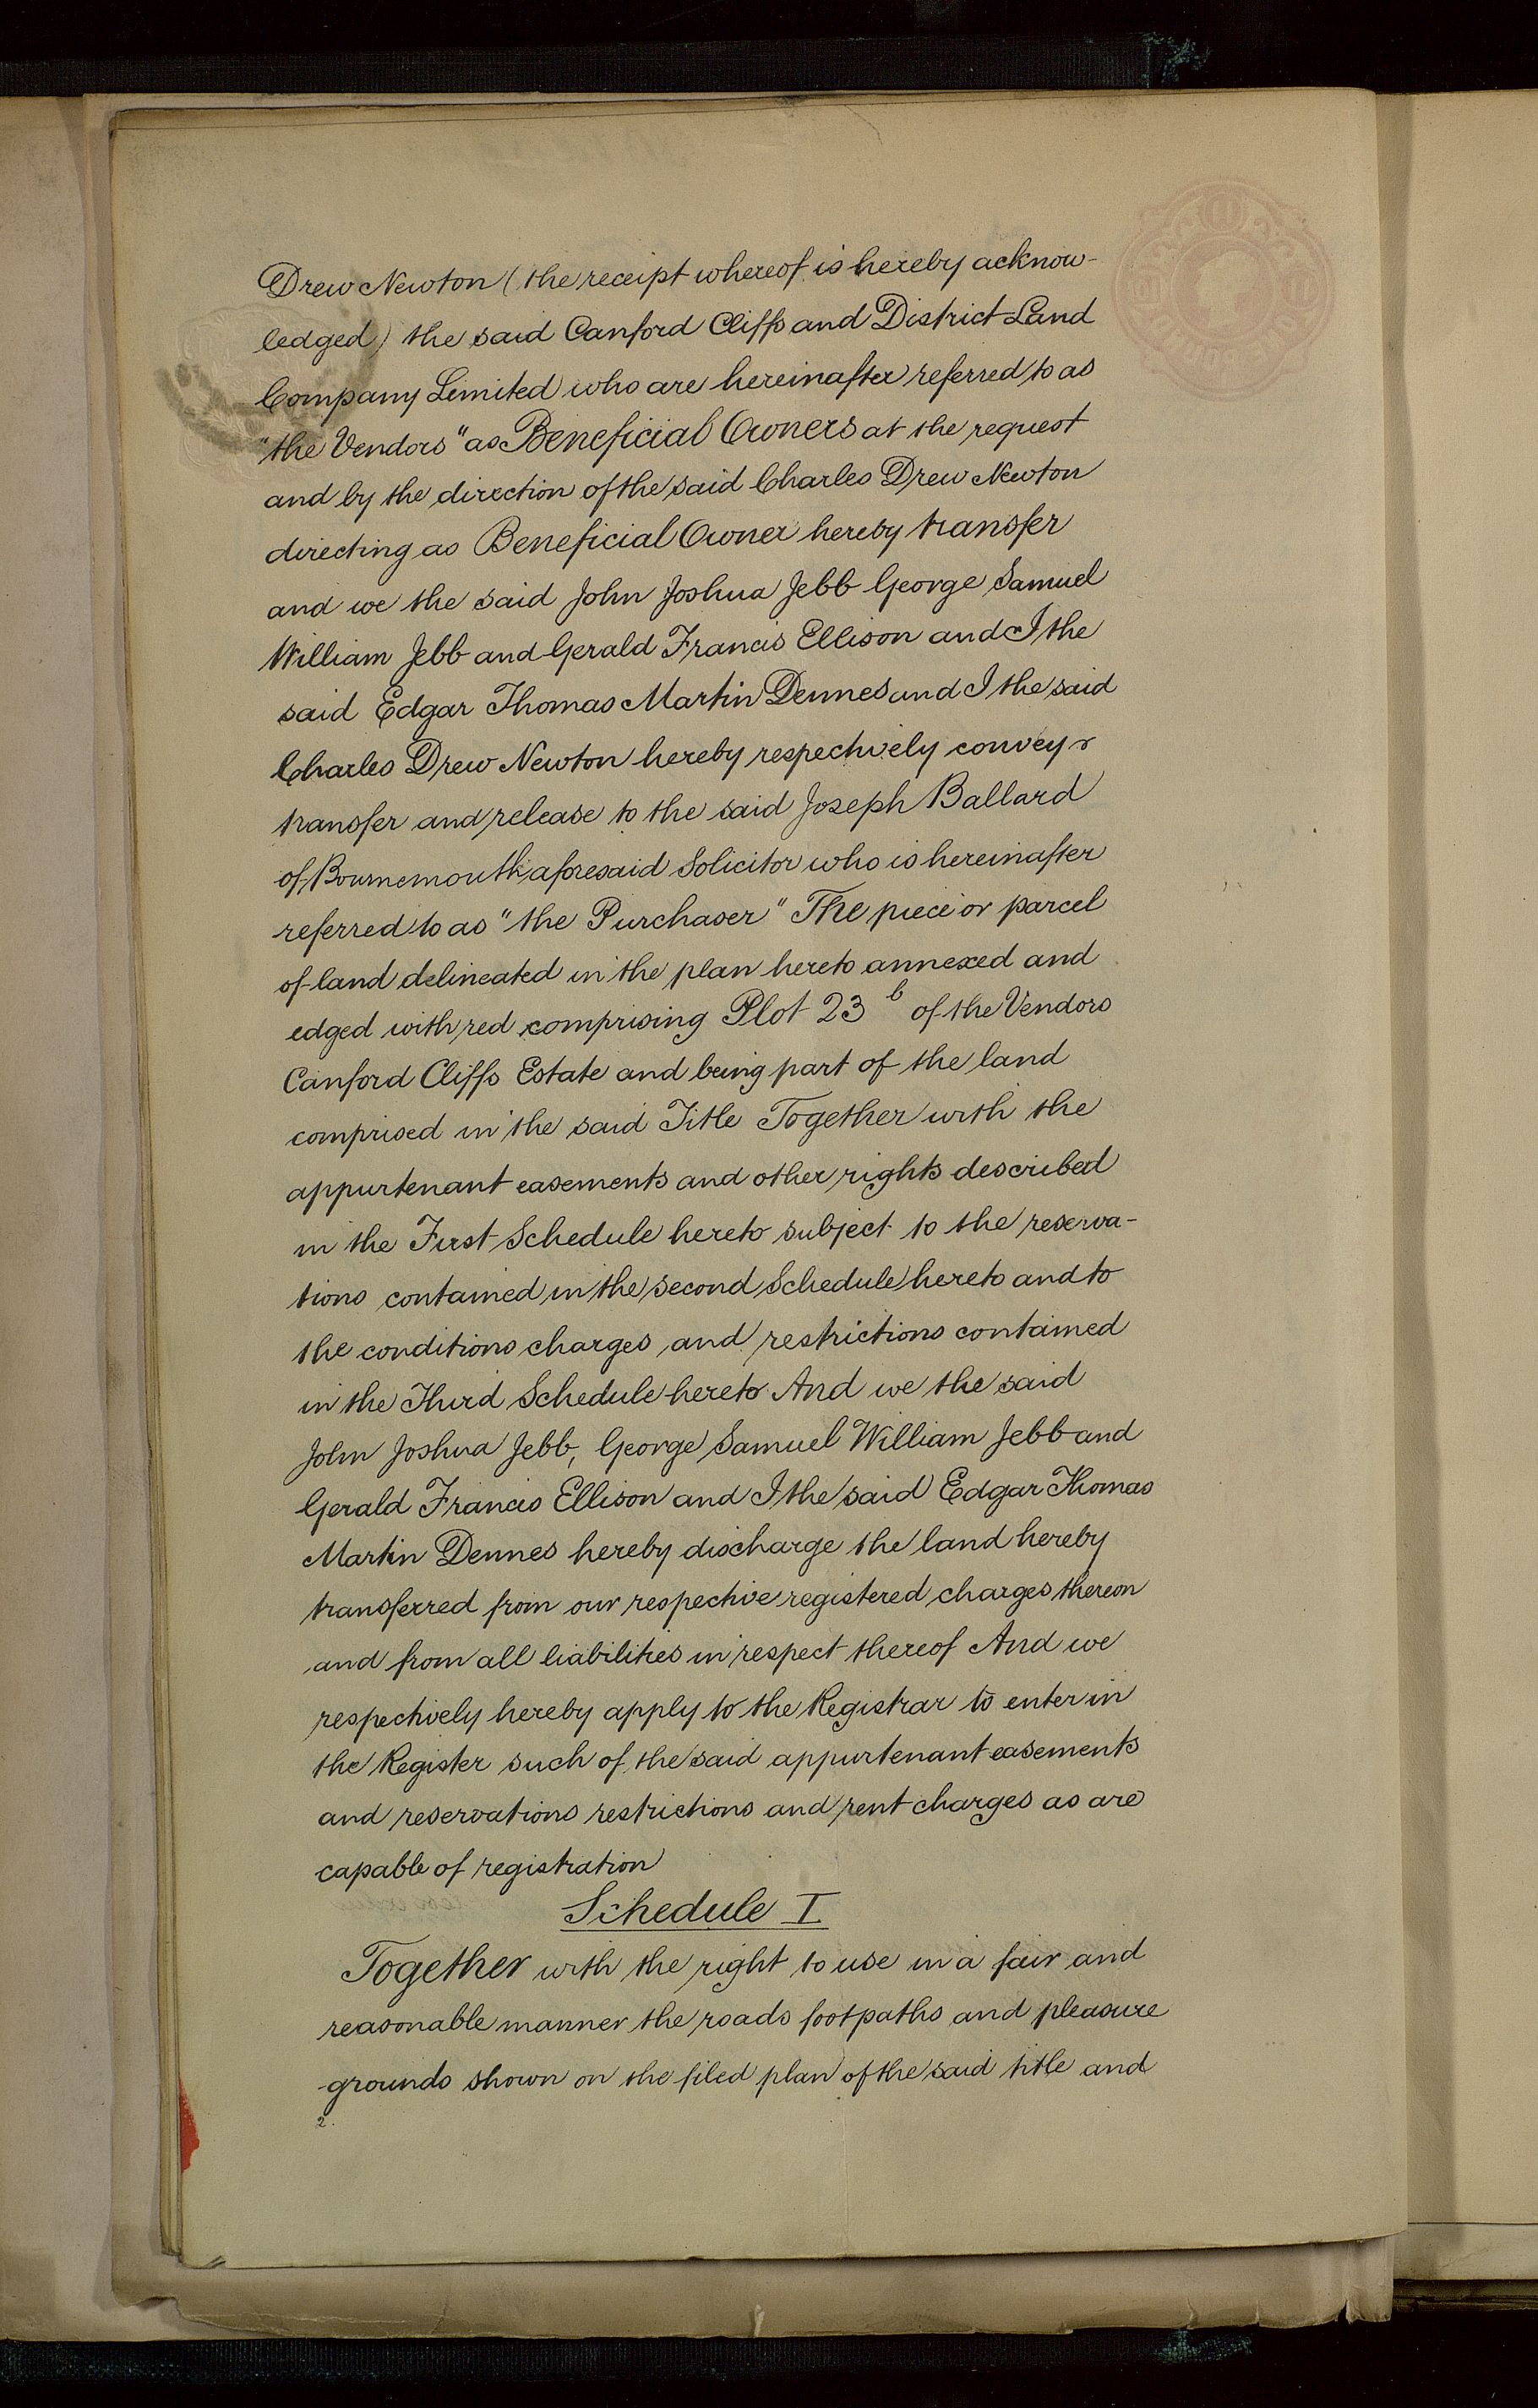 Drew Newton (the receipt whereof is hereby acknow-
ledged) the said Canford Cliffs and District Land
Company Limited who are hereinafter referred to as
"the Vendors" as Beneficial Owners at the request
and by the direction of the said Charles Drew Newton
directing as Beneficial Owner hereby transfer
and we the said John Joshua Jebb George Samuel
William Jebb and Gerald Francis Ellison and I the
said Edgar Thomas Martin Dennes and I the said
Charles Drew Newton hereby respectively convey &
transfer and release to the said Joseph Ballard
of Bournemouth aforesaid Solicitor who is hereinafter
referred to as "the Purchaser" The piece or parcel
of land delineated in the plan hereto annexed and
edged with red comprising Plot 23 b of the Vendors
Canford Cliffs Estate and being part of the land
comprised in the said Title Together with the
appurtenant easements and other rights described
in the First Schedule hereto subject to the reserva-
tions contained in the second Schedule hereto and to
the conditions charges and restrictions contained
in the Third Schedule hereto And we the said
John Joshua Jebb, George Samuel William Jebb and
Gerald Francis Ellison and I the said Edgar Thomas
Martin Dennes hereby discharge the land hereby
transferred from our respective registered charges thereon
and from all liabilities in respect thereof And we
respectively hereby apply to the Registrar to enter in
the Register such of the said appurtenant easements
and reservations restrictions and rent charges as are
capable of registration
Schedule I
Together with the right to use in a fair and
reasonable manner the roads footpaths and pleasure
grounds shown on the filed plan of the said title and
2.